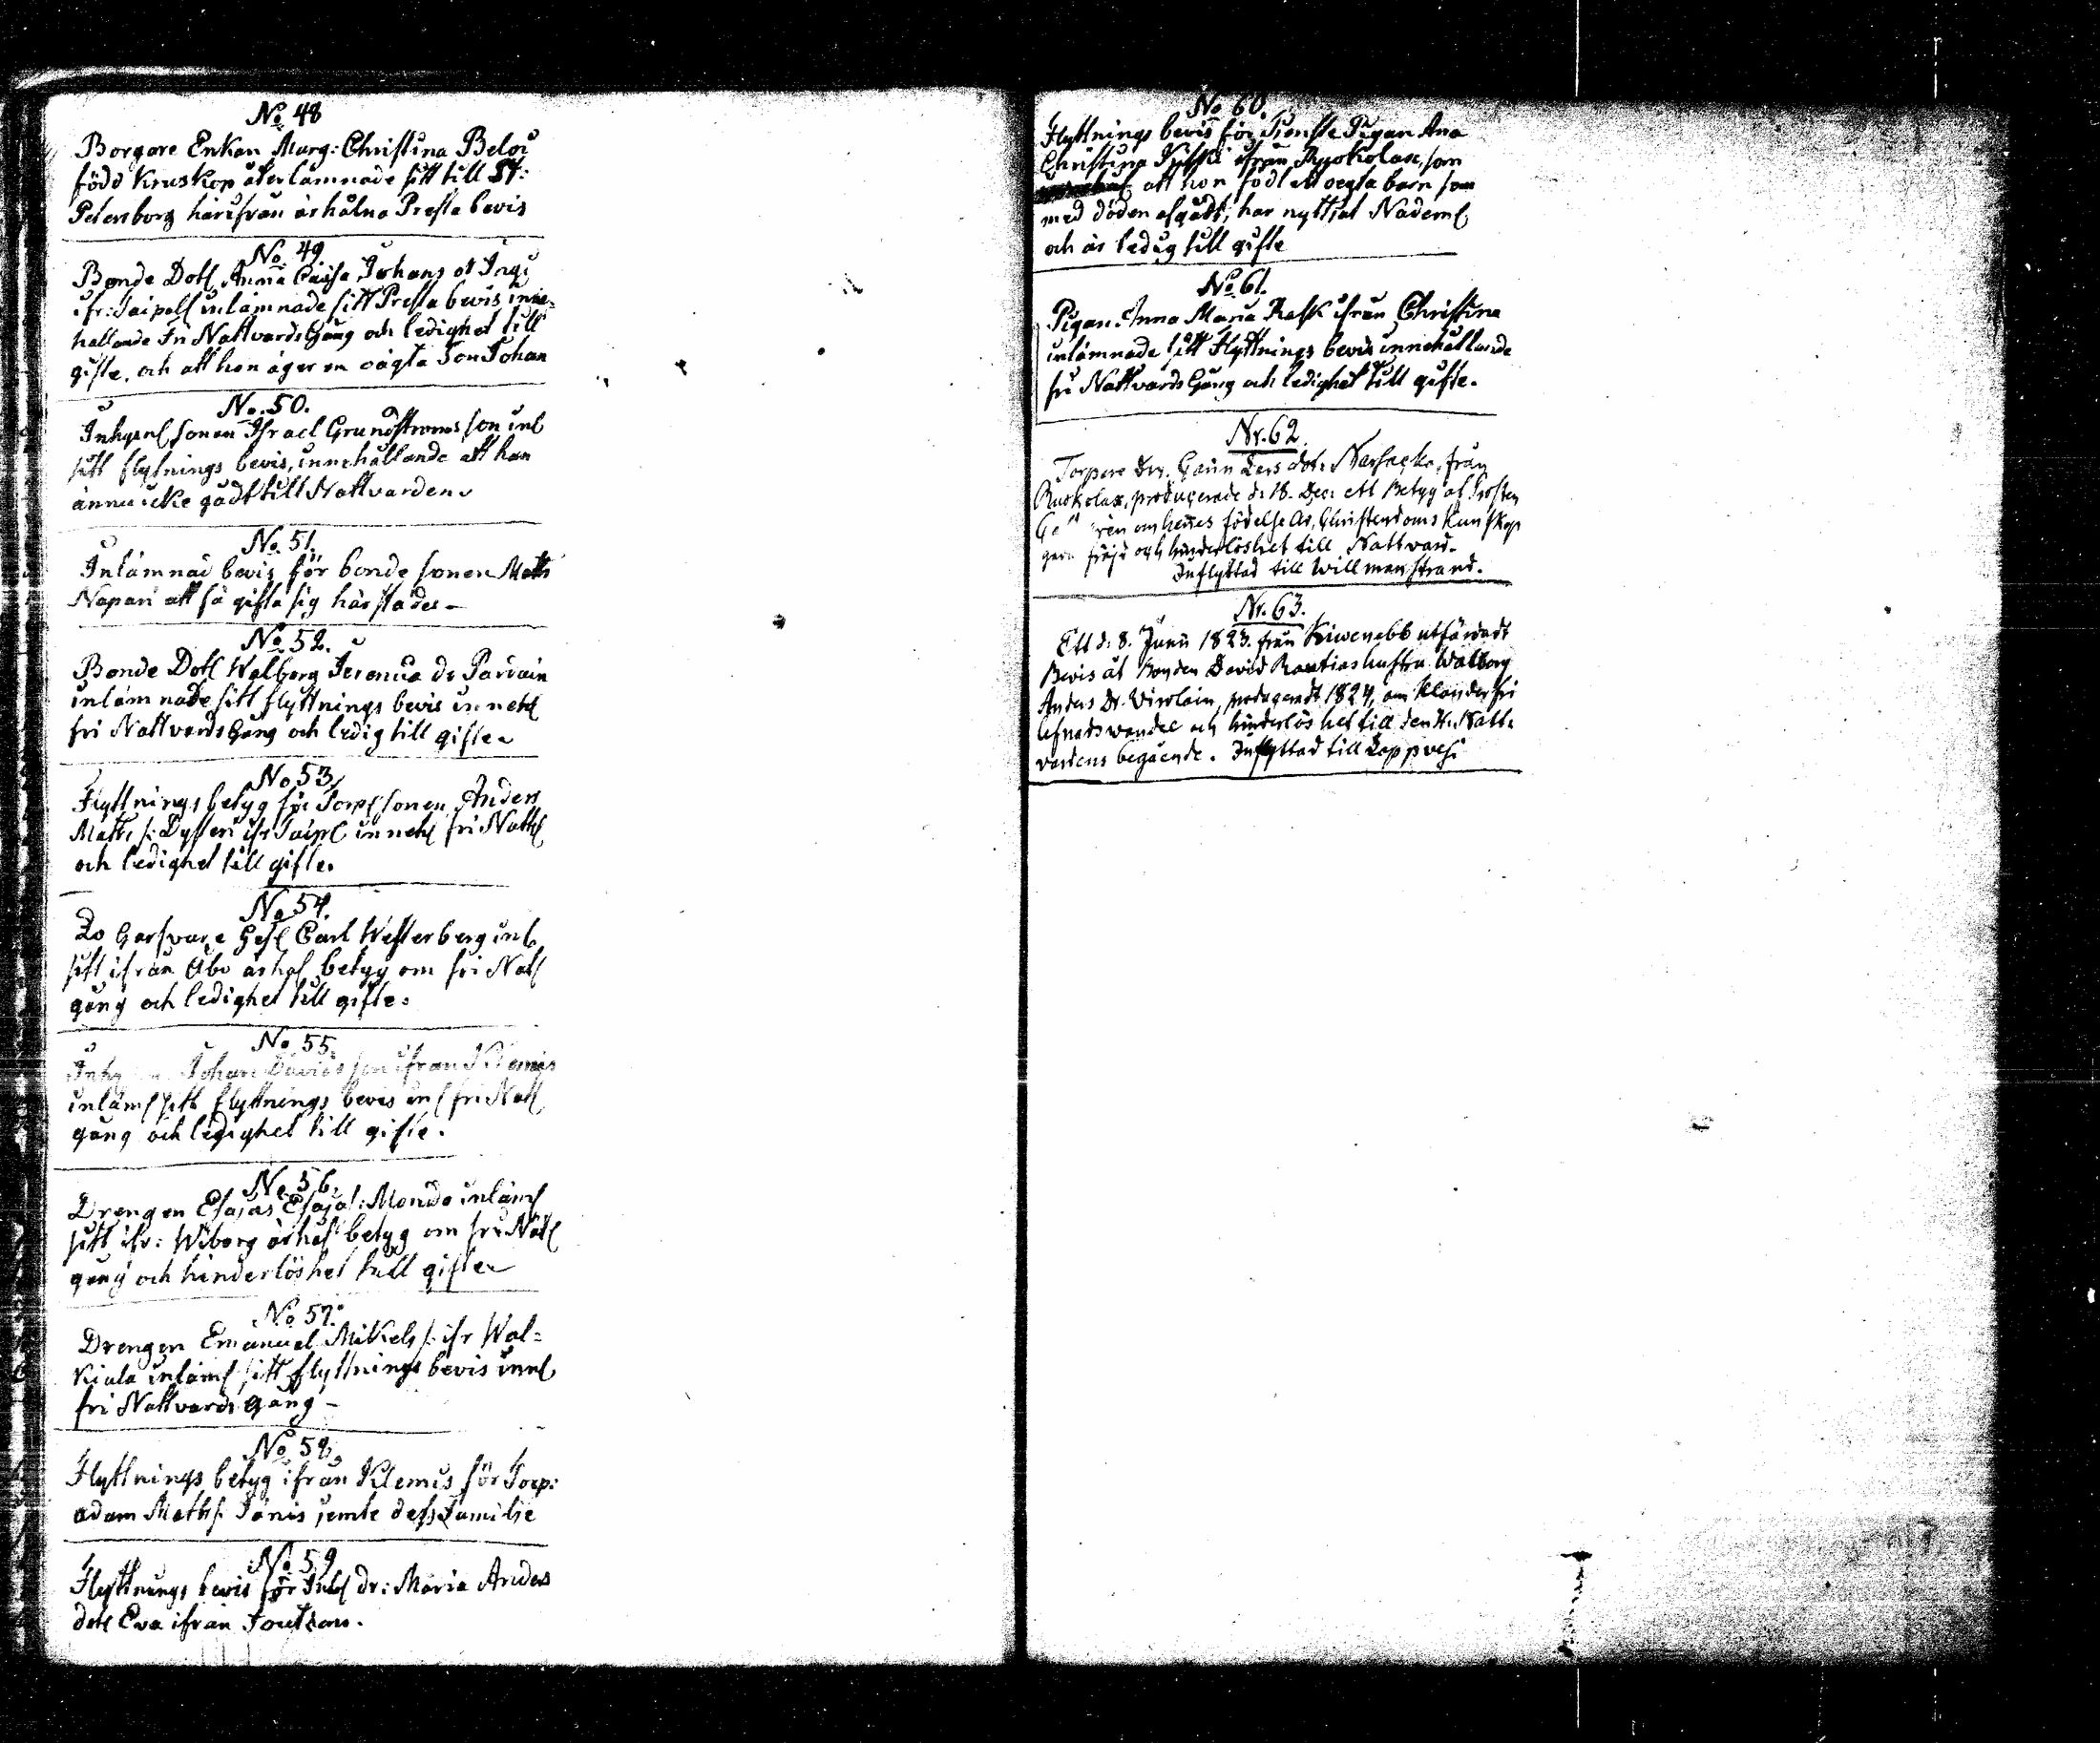 No 48
Borgare Enkan Marg: Christina Beloi
född Kruskop återlämnade sitt till St:
Petersborg härifrån ärhålna Presta bevis
No. 49.
Bonde Dott Anna Caisa Johans dt Ingi
ifr: Taipals inlämnade sitt Presta bevis inne-
hallande fri Nattvards Gång och ledighet till
gifte, och att hon äger en oägta Son Johan
No. 50.
Inhyses sonen Israel Grundströms son inl
sitt flytnings bevis, innehållande att han
ännu icke gådt till Nattvarden
No. 51.
Inlämnad bevis för bonde sonen Matts
Napari att få gifta sig härstädes-
No. 52.
Bonde Dott Walborg Jeremia dr Parvain
inlämnade sitt flyttnings bevis inneh
fri Nattvards Gång och ledig till gifte
No 53,
Flyttnings betyg för Torp sonen Anders
Matts s: Dysteri ifr Taipl inneh fri Natt
och ledighet till gifte.
No 54.
Lo Garfvare Ges Carl Westerberg inl
sitt ifrån Åbo ärhal betyg om fri Natt
gång och ledighet till gifte.
No 55.
Johan Davidsson ifran Klemis
inläm sitt flyttnings bevis in fri Natt
gång och ledighet till gifte.
No 56.
Drengen Esajas Esajas: Mondo inläm
sitt ifr: Wiborg ärhal betyg om fri Natt
gång och hinderlöshet till gifte
No 57.
Drengen Emanuel Mikels s: ifr Wal=
kiala inläm sitt flyttnings bevis inne
fri Nattvards Gång -
No 58,
Flyttnings betyg ifrån Klemis för Torp:
adam Matts s: Jänis jemte dess Familie
No 59
Flyttnings bevis för Inh dr: Maria Anders
dott Eva ifrån Joutseno.
No 60.
Flyttnings bevis för Tienste Pigan Ana
Christina ifrån Ruokolax, som
att hon födt ett oegta barn som
med döden afgådt, har nyttjat Nadem
och är ledig till gifte
No 61.
Pigan Anna Maria Rask ifrån Christina
inlämnade sitt Flyttnings bevis innehållande
fri Nattvards Gång och ledighet till gifte.
Nr. 62.
Torpare Dr. Carin Lars dotr. Narsacka, från
Ruokolax, producerade d: 18. Dec: ett Betyg af Prosten
om hennes födelse År, Christendoms Kunskap
frejd och hinderlöshet till Nattvard.
Inflyttad till Willmanstrand.
Nr. 63.
Ett d. 8. Junii 1823. från Kiwenebb utfärdadt
Bevis åt Bonden David Rautias hustru Walborg
Anders Dr. Virolain, producerat 1824, om klanderfri
lefnadswandel och hinderlöshet till den H. Natt-
vardens begående. Inflyttad till Lappvesi